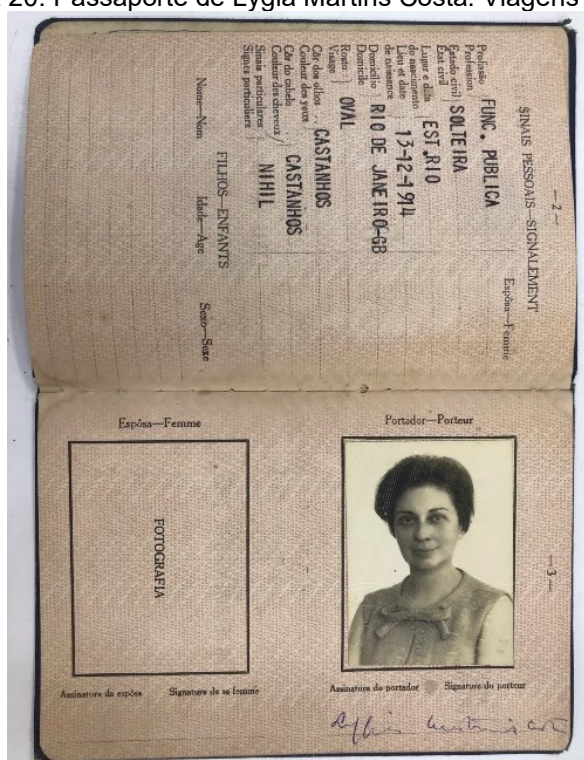 20. Passaporte de Lygia Martins Costa. Viagens
— 2 —
SINAIS PESSOAIS—SIGNALEMENT
Espôsa—Femme
Profissão
Profession
FUNC. PUBLICA
Estado civil
État civil
SOLTEIRA
Lugar e data
do nascimento
Lieu et date
de naissance
EST.RIO
13-12-1914
Domicílio
Domicile
RIO DE JANEIRO-GB
Rosto
Visage
OVAL
Côr dos olhos
Couleur des yeux
CASTANHOS
Côr do cabelo
Couleur des cheveux
CASTANHOS
Sinais particulares
Signes particuliers
NIHIL
FILHOS—ENFANTS
Nome—Nom Idade—Age Sexo—Sexe
Espôsa—Femme
Portador—Porteur
FOTOGRAFIA
— 3 —
Assinatura da espôsa Signature de sa femme
Assinatura do portador Signature du porteur
Lygia Martins Costa